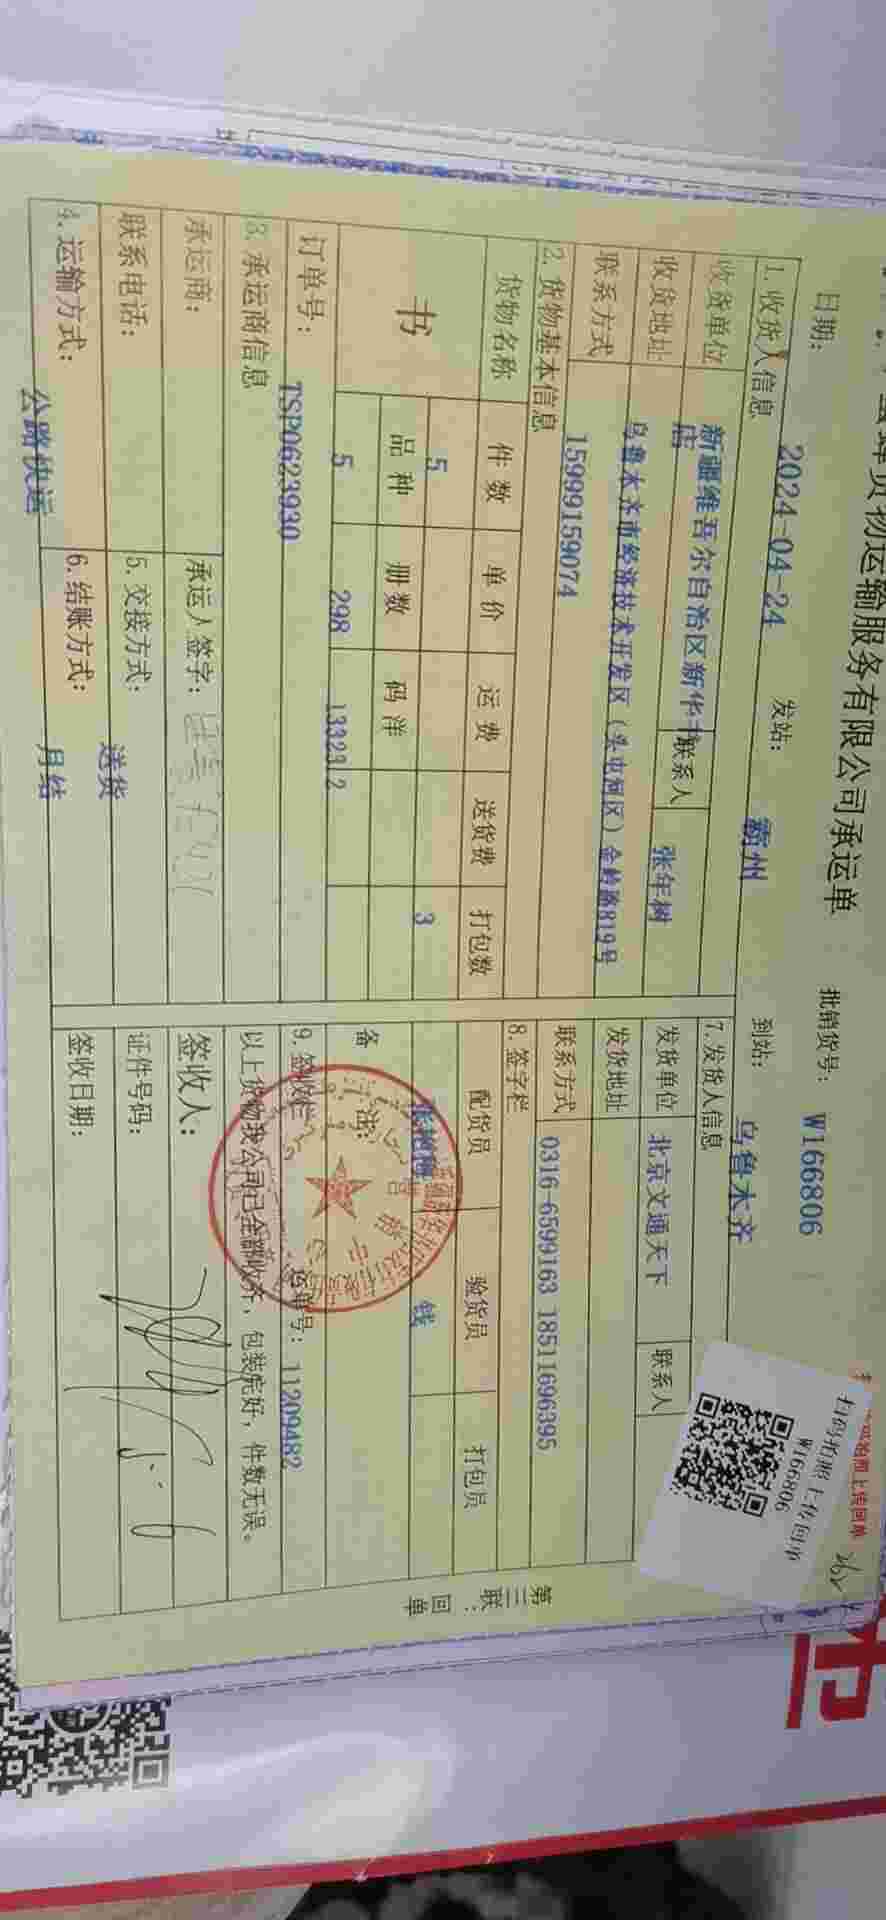 货物运输服务有限公司承运单
批销货号： W166806
日期： 2024-04-24 发站： 霸州 到站： 乌鲁木齐
1.收货人信息
收货单位 新疆维吾尔自治区新华书店 联系人 张年树
收货地址 乌鲁木齐市经济技术开发区（头屯河区）金岭路819号
联系方式 15999159074
2.货物基本信息
货物名称 件数 单价 运费 送货费 打包数
书 5 3
品种 册数 码洋
5 298 13323.2
订单号： TSP0623930
3.承运商信息
承运商： 承运人签字：
联系电话： 5.交接方式： 送货
4.运输方式： 公路快运 6.结账方式： 月结
7.发货人信息
发货单位 北京文通天下 联系人
发货地址
联系方式 0316-6599163 18511696395
8.签字栏
配货员 验货员 打包员
钱
备注：
9.签收栏 运单号： 11209482
以上货物我公司已全部收齐，包装完好，件数无误。
签收人：
证件号码：
签收日期：
第三联：回单
扫码拍照上传回单
W166806
拍照上传回单